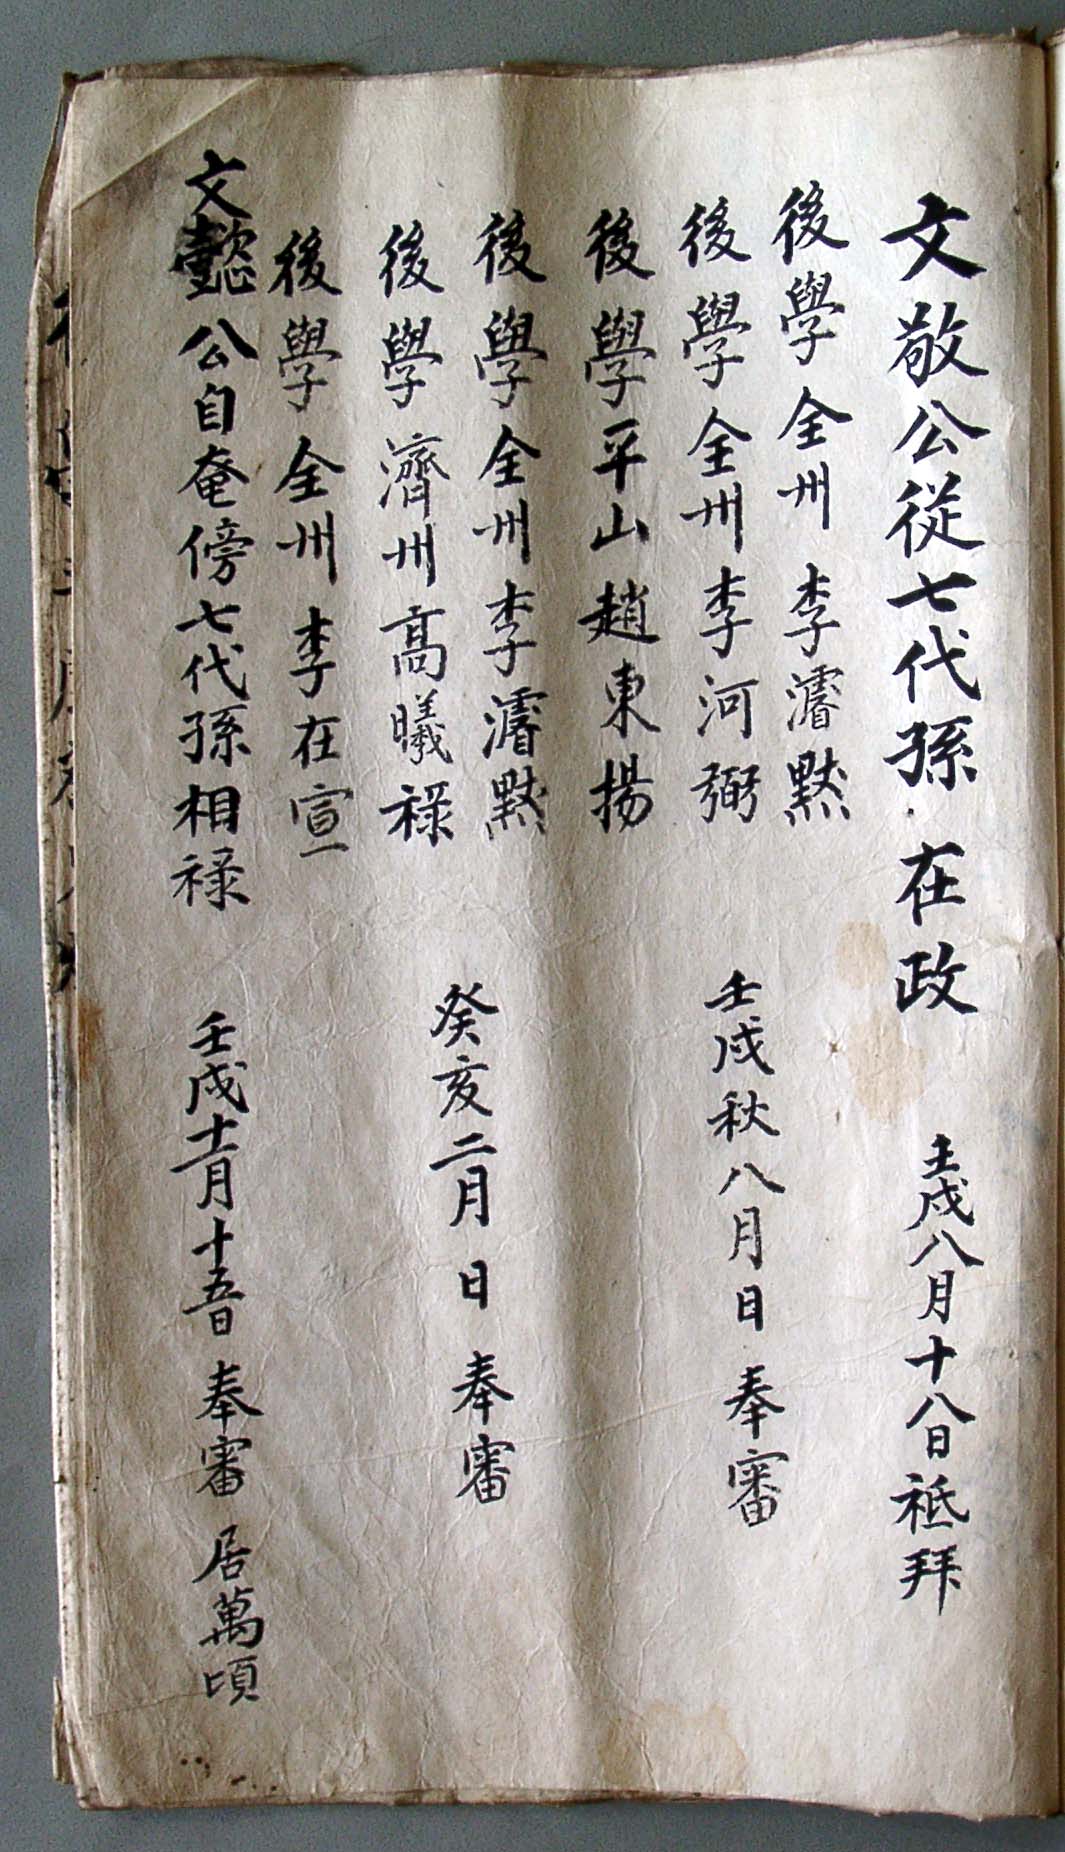 文敬公從七代孫 在政 壬戌八月十八日祗拜
後學全州李濬默
後學全州李河弼 壬戌秋八月日奉審
後學平山趙東揚
後學全州李濬黙
後學濟州高曦祿 癸亥二月日奉審
後學全州李在宣
文懿公自奄傍七代孫相祿 壬戌十二月十五日奉審 居萬頃